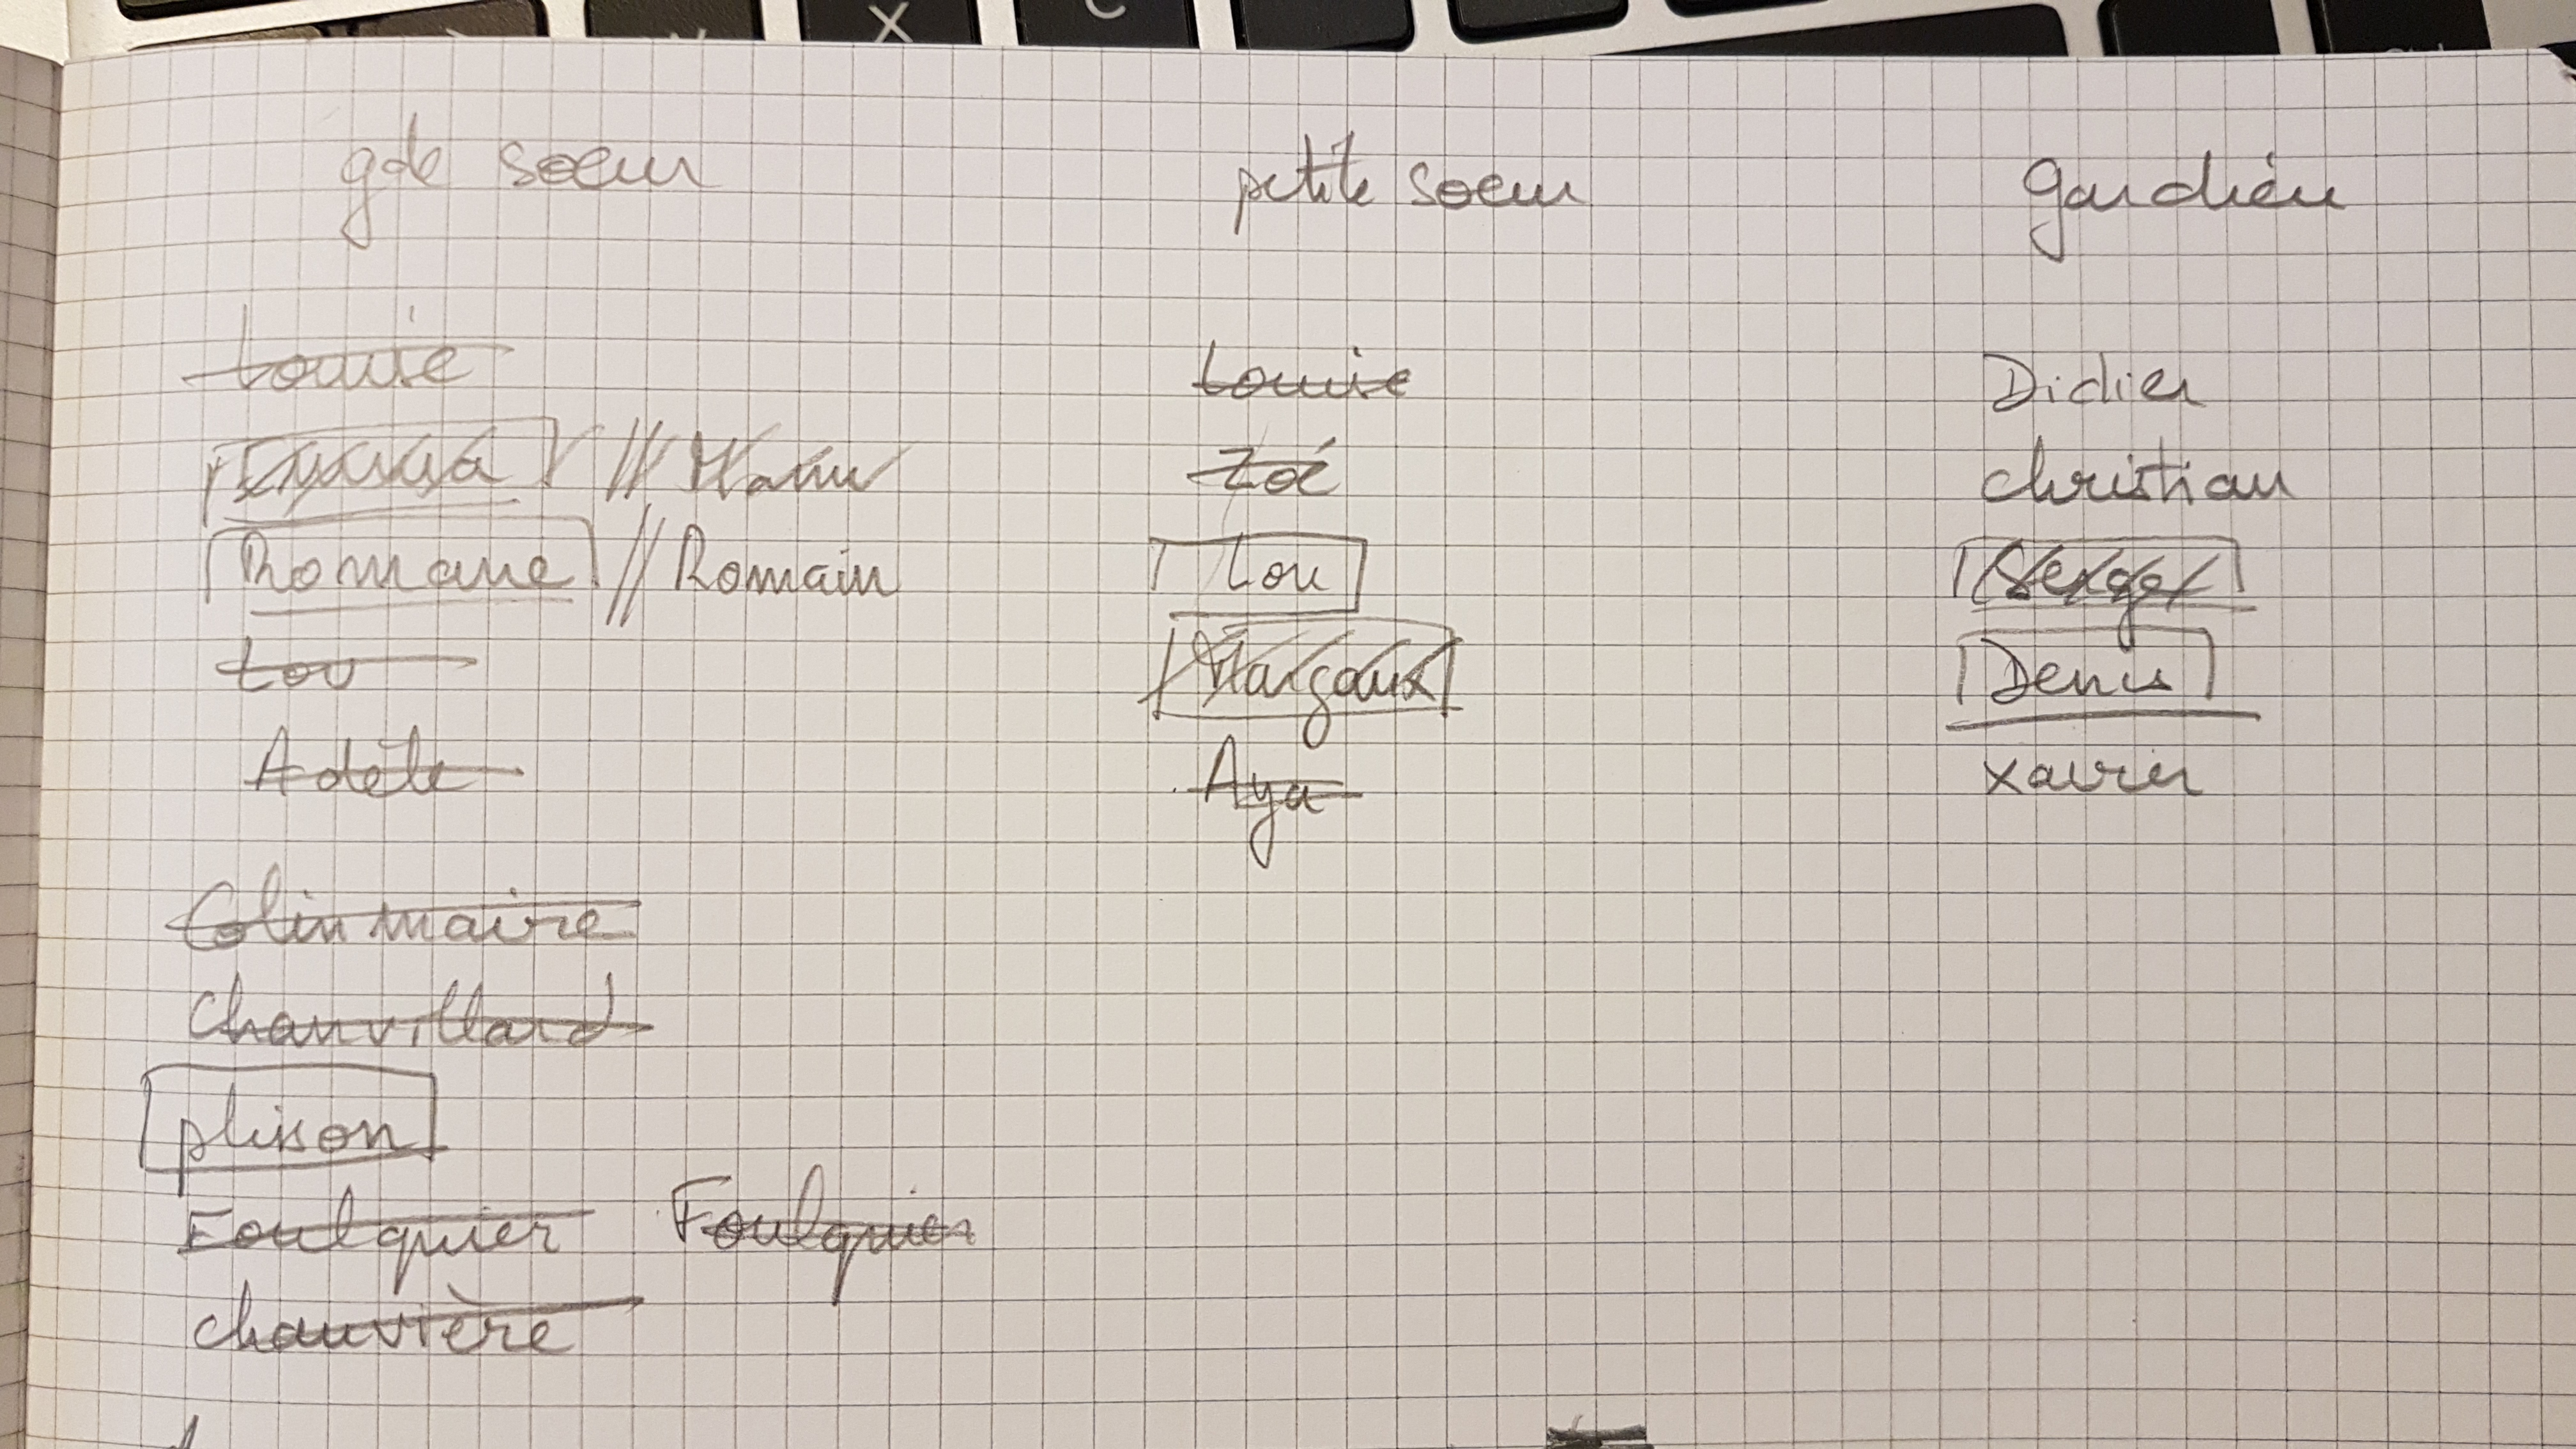 X C
gde soeur petite soeur gardien
Louise Louise Didier
Emma // Manu Zoé christian
Romane // Romain Lou Serge
Lou Margaux Denis
Adèle Aya xavier
Colin maire
Chanvillard
plisson
Foulquier Foulquier
chauvière